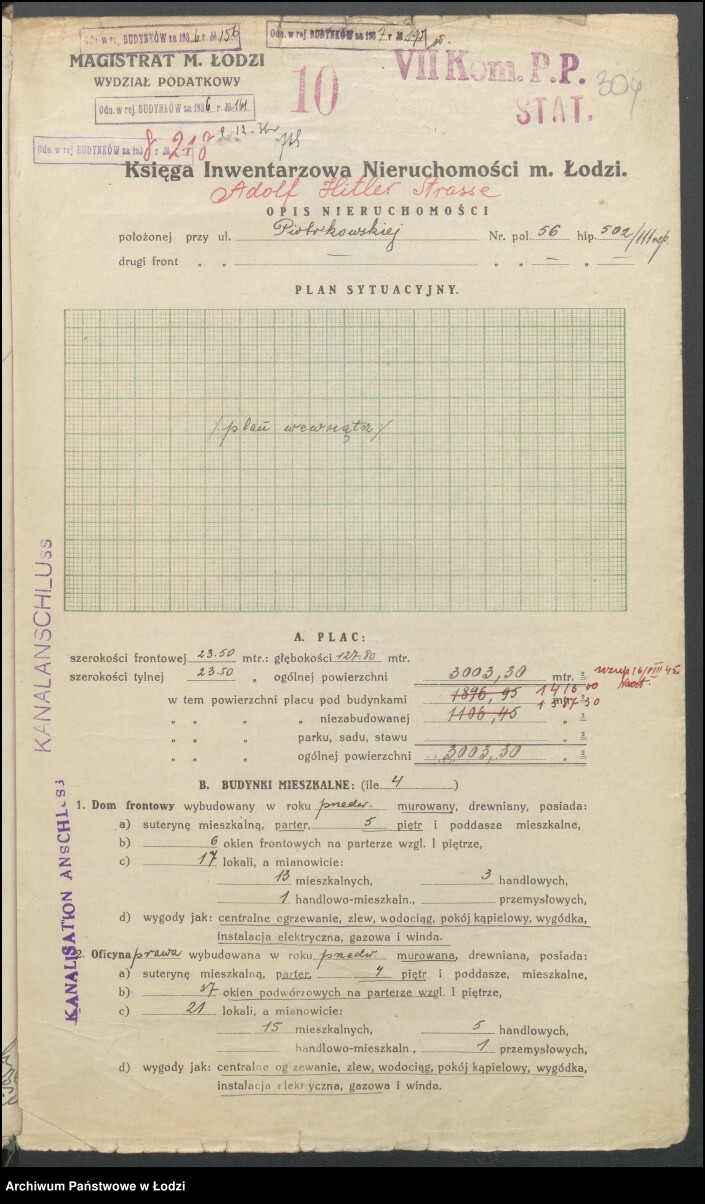 Odn. w rej. BUDYNKÓW za 1936 r. № 156
Odn. w rej. BUDYNKÓW za 1937 r. № 195
MAGISTRAT M. ŁODZI
WYDZIAŁ PODATKOWY
VII Kom. P.P.
304
10
STAT.
Odn. w rej. BUDYNKÓW za 1936 r. № 161
Odn. w rej BUDYNKÓW za 193 8 r. № 218
Księga Inwentarzowa Nieruchomości m. Łodzi.
Adolf Hitler Strasse
OPIS NIERUCHOMOŚCI
położonej przy ul. Piotrkowskiej Nr. pol. 56 hip. 502/III rep.
drugi front „ „ — „ „ — „ —
PLAN SYTUACYJNY.
/plan wewnątrz/
KANALANSCHLUSS
A. PLAC:
szerokości frontowej 23.50 mtr.: głębokości 127.80 mtr.
szerokości tylnej 23.50 „ ogólnej powierzchni 3003,30 mtr. ²
w tem powierzchni placu pod budynkami 1896,95 1416 00 mtr. ²
„ „ „ „ niezabudowanej 1106,45 1587 30 „ ²
„ „ „ parku, sadu, stawu „ ²
„ „ „ ogólnej powierzchni 3003,30 „ ²
B. BUDYNKI MIESZKALNE: (ile 4 )
1. Dom frontowy wybudowany w roku przedw. murowany, drewniany, posiada:
a) suterynę mieszkalną, parter, 5 piętr i poddasze mieszkalne,
b) 6 okien frontowych na parterze wzgl. I piętrze,
c) 17 lokali, a mianowicie:
13 mieszkalnych, 3 handlowych,
1 handlowo-mieszkaln., przemysłowych,
d) wygody jak: centralne ogrzewanie, zlew, wodociąg, pokój kąpielowy, wygódka,
instalacja elektryczna, gazowa i winda.
KANALISATION ANSCHLUSS
2. Oficyna prawa wybudowana w roku przedw. murowana, drewniana, posiada:
a) suterynę mieszkalną, parter, 4 piętr i poddasze, mieszkalne,
b) 37 okien podwórzowych na parterze wzgl. I piętrze,
c) 21 lokali, a mianowicie:
15 mieszkalnych, 5 handlowych,
handlowo-mieszkaln., 1 przemysłowych,
d) wygody jak: centralne ogrzewanie, zlew, wodociąg, pokój kąpielowy, wygódka,
instalacja elektryczna, gazowa i winda.
Archiwum Państwowe w Łodzi